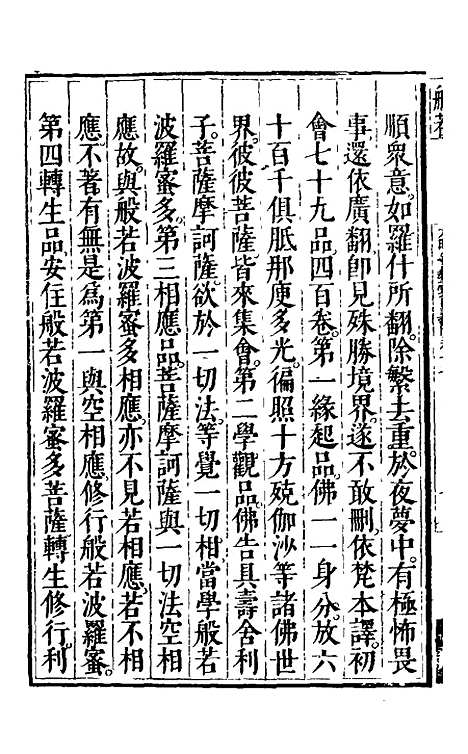 般若
順衆意。如羅什所翻。除繁去重。於夜夢中。有極怖畏
事。還依廣翻。卽見殊勝境界。遂不敢刪。依梵本譯。初
會七十九品四百卷。第一緣起品。佛一一身分。放六
十百千俱胝那庾多光。徧照十方殑伽沙等諸佛世
界。彼彼菩薩。皆來集會。第二學觀品。佛告具壽舍利
子。菩薩摩訶薩。欲於一切法。等覺一切相。當學般若
波羅蜜多。第三相應品。菩薩摩訶薩。與一切法空相
應故。與般若波羅蜜多相應。亦不見若相應。若不相
應。不著有無。是爲第一與空相應。修行般若波羅蜜。
第四轉生品。安住般若波羅蜜多菩薩。轉生修行。利